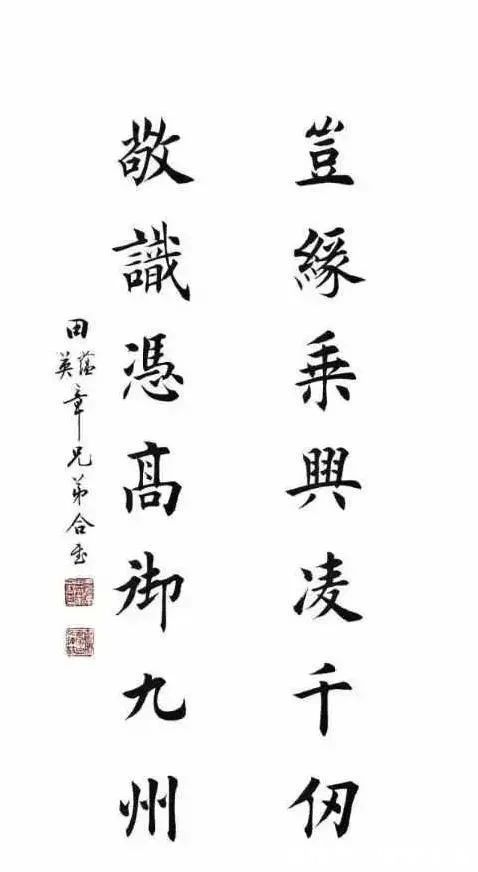 豈緣乗興凌千仞
敬識憑髙御九州
田蘊英章兄弟合書